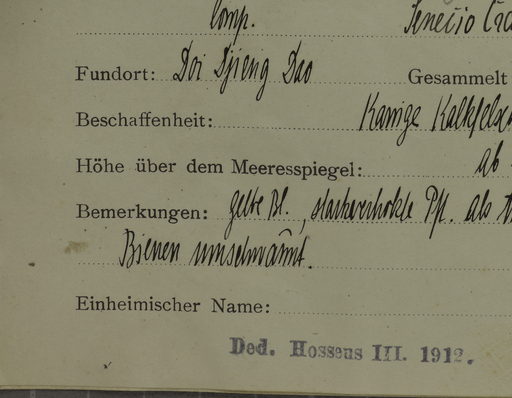 Comp. Senecio Cra
Fundort: Doi Djieng Dao Gesammelt
Beschaffenheit: Karrige Kalkfels
Höhe über dem Meeresspiegel: ab
Bemerkungen: gelbe Bl., Pfl. als
Bienen umschwärmt.
Einheimischer Name:
Ded. Hosseus III. 1912.